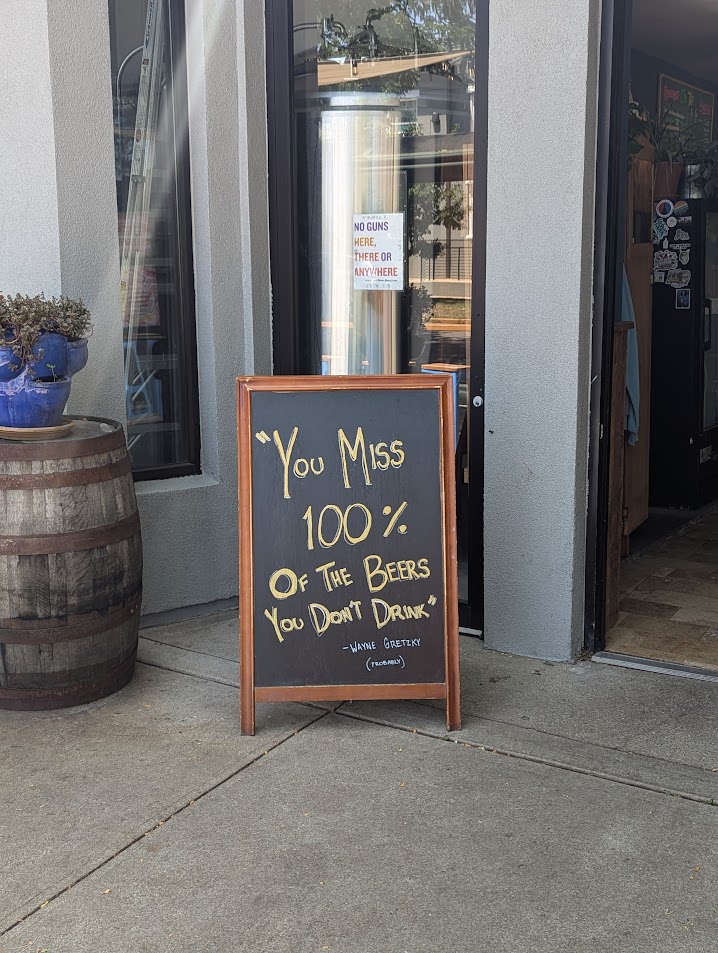 NO GUNS
HERE,
THERE OR
ANYWHERE
"You Miss
100%
Of The Beers
You Don't Drink"
-Wayne Gretzky
(Probably)